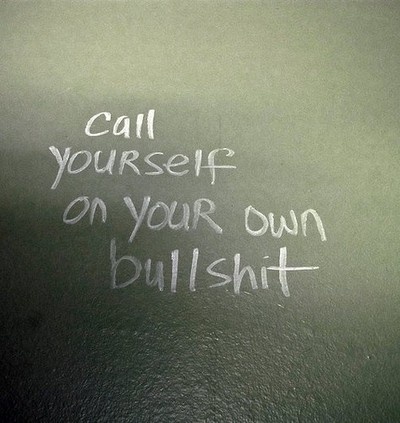 call
YOURSElf
on YOUR own
bullshit